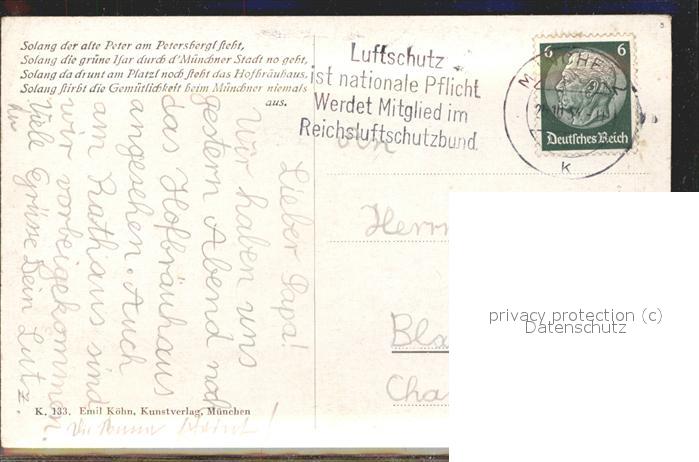 Solang der alte Peter am Petersbergl steht,
Solang die grüne Isar durch d'Münchner Stadt no geht,
Solang da drunt am Platzl noch steht das Hofbräuhaus,
Solang stirbt die Gemütlichkeit beim Münchner niemals
aus.
Luftschutz
ist nationale Pflicht
Werdet Mitglied im
Reichsluftschutzbund.
MÜNCHEN
K
6 6
Deutsches Reich
Lieber Papa!
Wir haben uns
gestern Abend noch
das Hofbräuhaus
angesehen. Auch
am Rathaus sind
wir vorbeigekommen.
Viele Grüsse Dein Lutz.
Herrn
Bla
Cha
privacy protection (c)
Datenschutz
K. 133. Emil Köhn, Kunstverlag, München